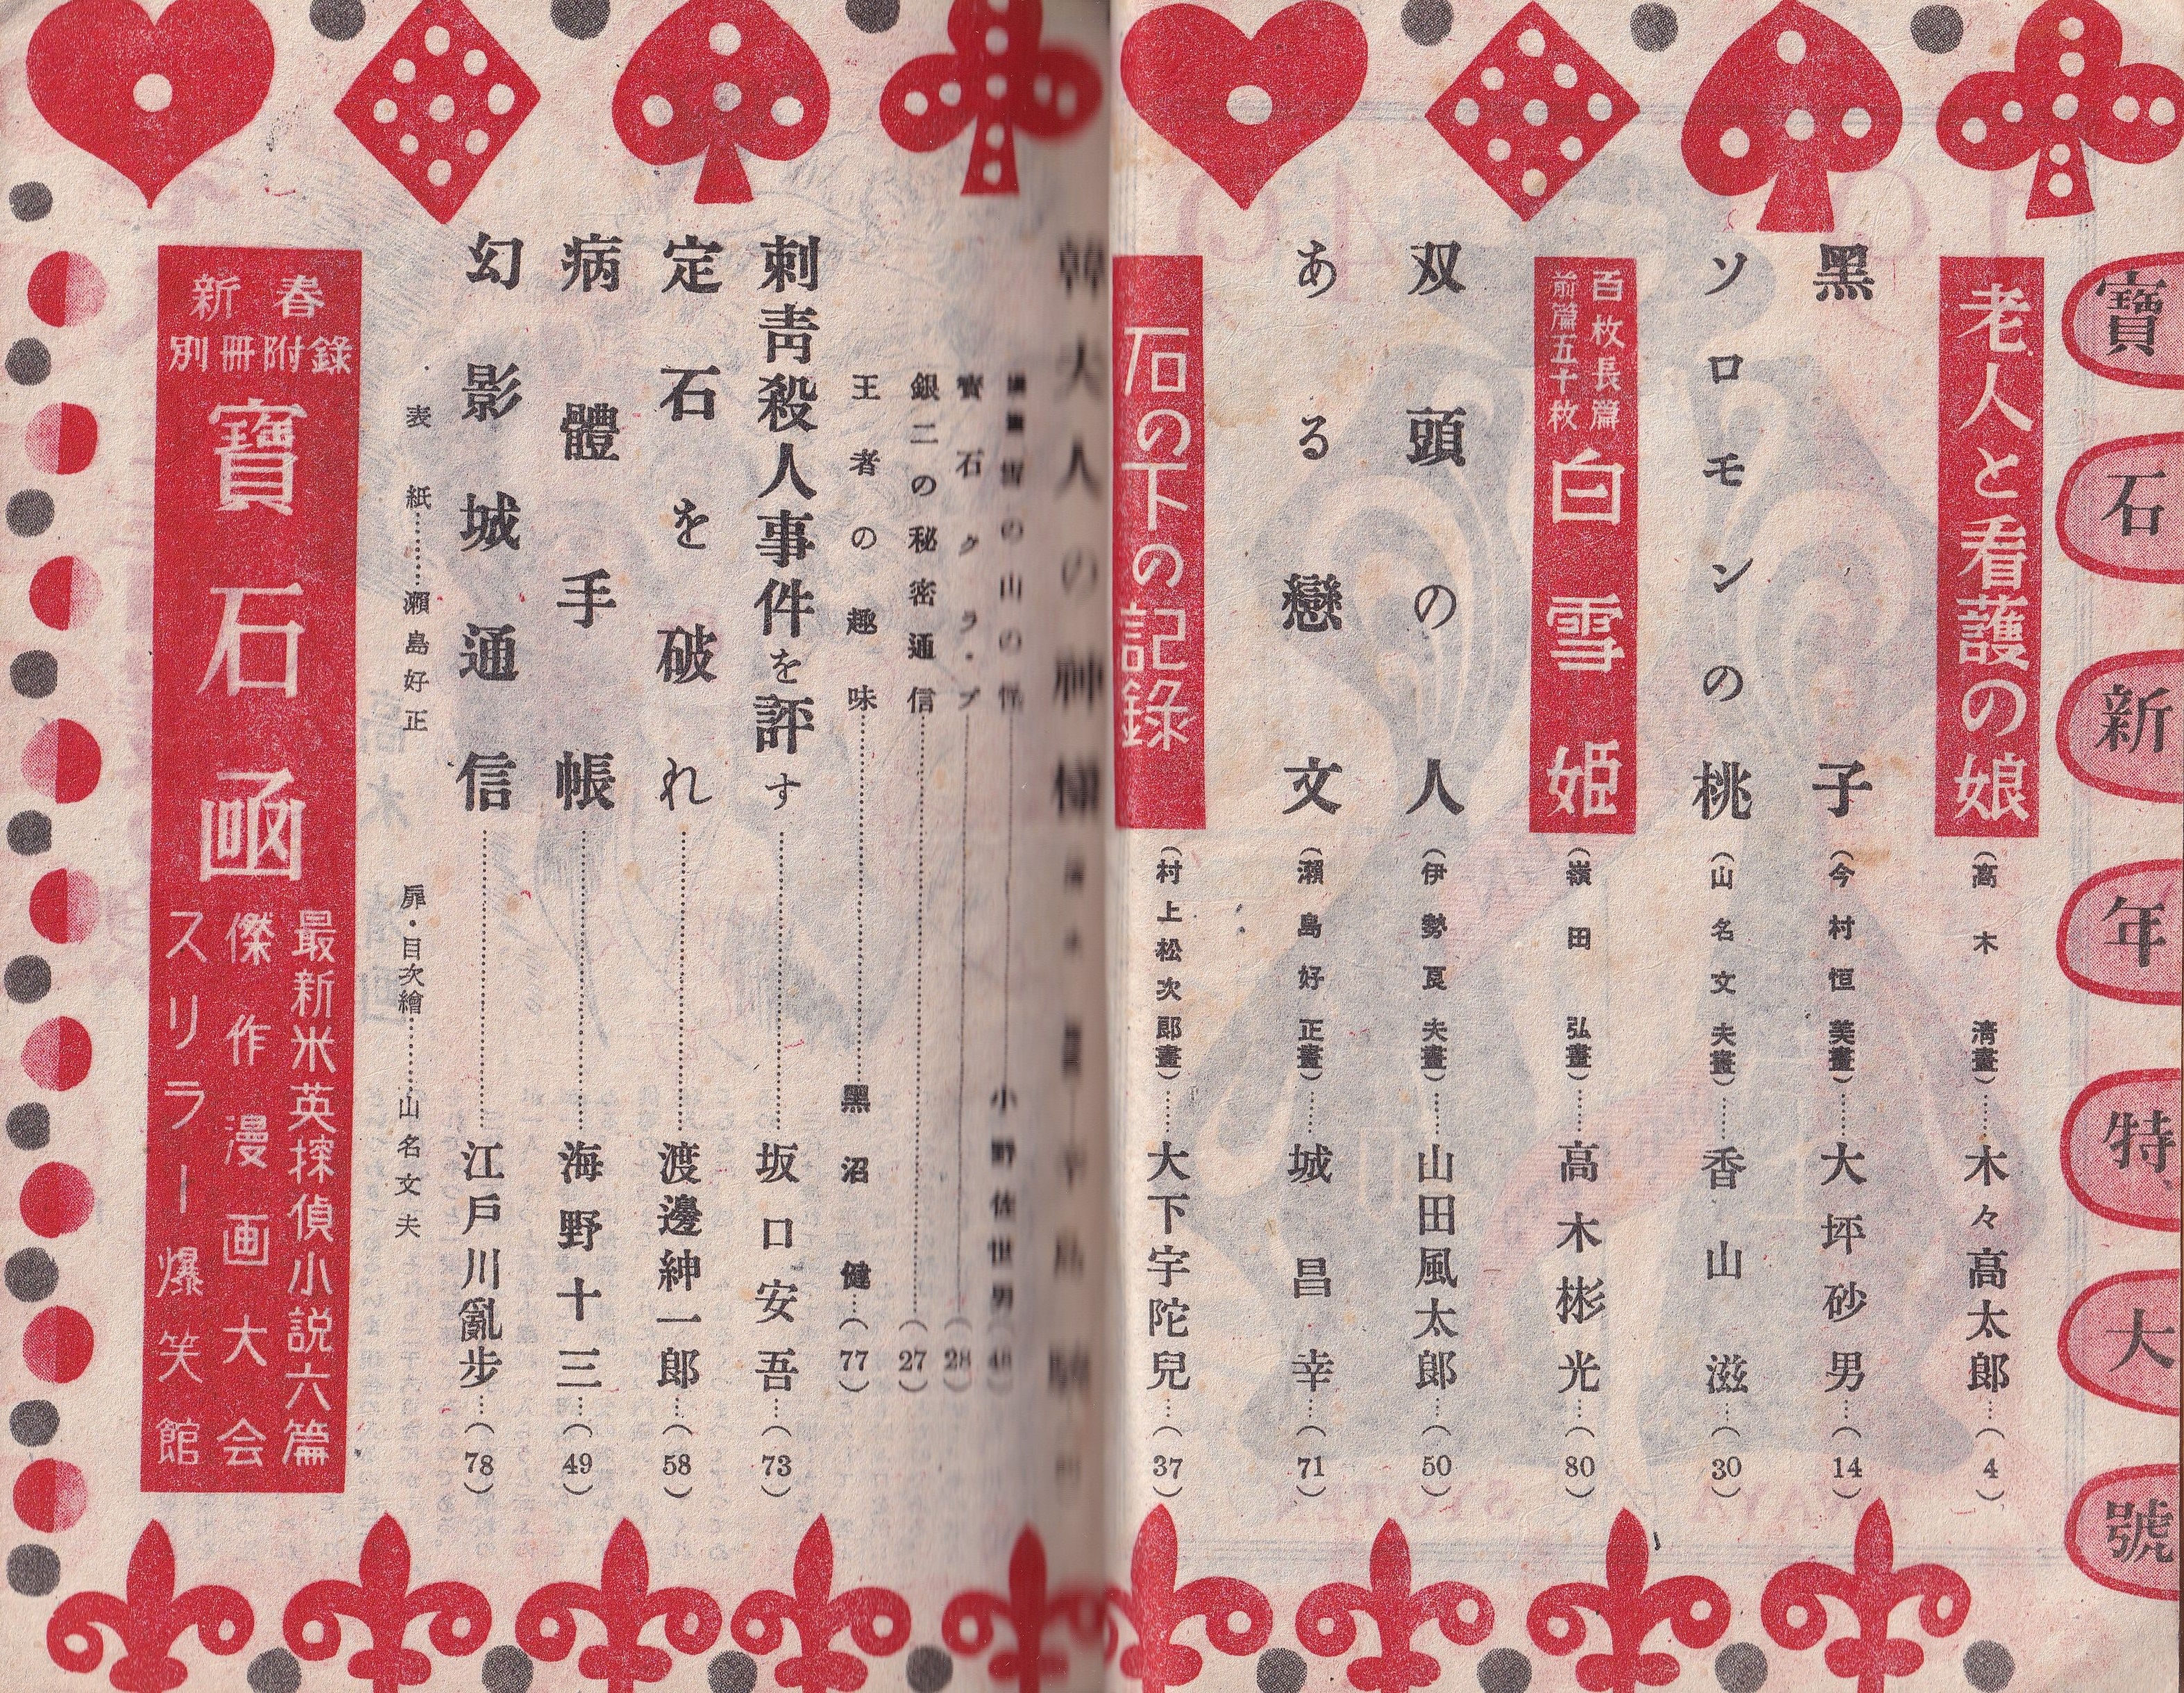 寶石新年特大號
老人と看護の娘（高木淸畫）……木々高太郎…（4）
黑子（今村恒美畫）……大坪砂男…（14）
ソロモンの桃（山名文夫畫）……香山滋…（30）
百枚長篇
前篇五十枚
白雪姫（嶺田弘畫）……高木彬光…（80）
双頭の人（伊勢良夫畫）……山田風太郎…（50）
ある戀文（瀨島好正畫）……城昌幸…（71）
石の下の記錄（村上松次郎畫）……大下宇陀兒…（37）
韓大人の神樣
雪の山の怪……小野佐世男（48）
寶石クラ・ブ……（28）
銀二の秘密通信……（27）
王者の趣味……黑沼健…（77）
刺靑殺人事件を評す……坂口安吾…（73）
定石を破れ……渡邊紳一郎…（58）
病體手帳……海野十三…（49）
幻影城通信……江戶川亂步…（78）
表紙……瀨島好正
扉・目次繪……山名文夫
新春
別冊附錄
寶石函
最新米英探偵小説六篇
傑作漫画大会
スリラー爆笑館